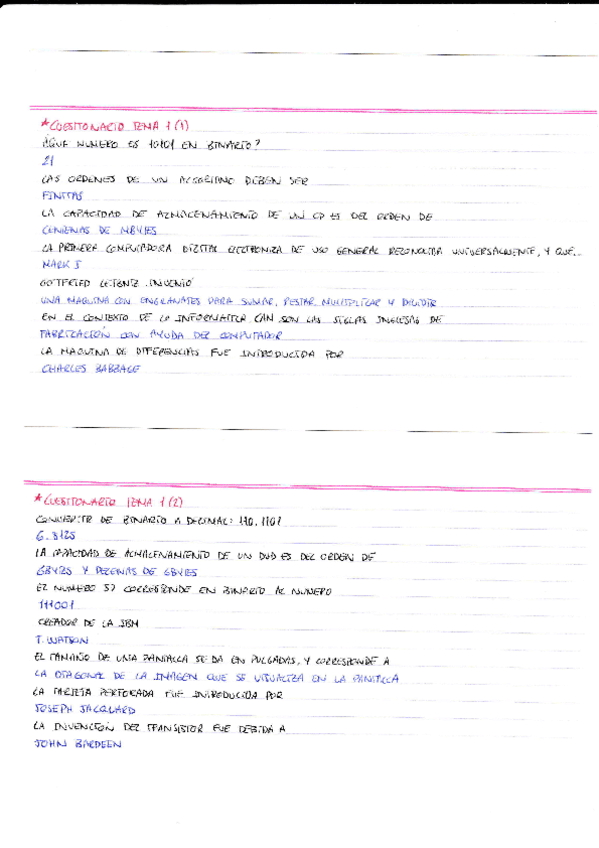 *CUESTIONARIO TEMA 1 (1)
¿QUE NUMERO ES 10101 EN BINARIO?
21
LAS ORDENES DE UN ALGORITMO DEBEN SER
FINITAS
LA CAPACIDAD DE ALMACENAMIENTO DE UN CD ES DEL ORDEN DE
CENTENAS DE MBYTES
LA PRIMERA COMPUTADORA DIGITAL ELECTRONICA DE USO GENERAL RECONOCIDA UNIVERSALMENTE, Y QUE...
MARK I
GOTTFRIED LEIBNIZ INVENTÓ
UNA MAQUINA CON ENGRANAJES PARA SUMAR, RESTAR, MULTIPLICAR Y DIVIDIR
EN EL CONTEXTO DE LA INFORMATICA CAM SON LAS SIGLAS INGLESAS DE
FABRICACIÓN CON AYUDA DEL COMPUTADOR
LA MAQUINA DE DIFERENCIAS FUE INTRODUCIDA POR
CHARLES BABBAGE
*CUESTIONARIO TEMA 1 (2)
CONVIERTE DE BINARIO A DECIMAL: 110.1101
6.8125
LA CAPACIDAD DE ALMACENAMIENTO DE UN DVD ES DEL ORDEN DE
GBYTES Y DECENAS DE GBYTES
EL NUMERO 57 CORRESPONDE EN BINARIO AL NUMERO
111001
CREADOR DE LA IBM
T. WATSON
EL TAMAÑO DE UNA PANTALLA SE DA EN PULGADAS, Y CORRESPONDE A
LA DIAGONAL DE LA IMAGEN QUE SE VISUALIZA EN LA PANTALLA
LA TARJETA PERFORADA FUE INTRODUCIDA POR
JOSEPH JACQUARD
LA INVENCION DEL TRANSISTOR FUE DEBIDA A
JOHN BARDEEN